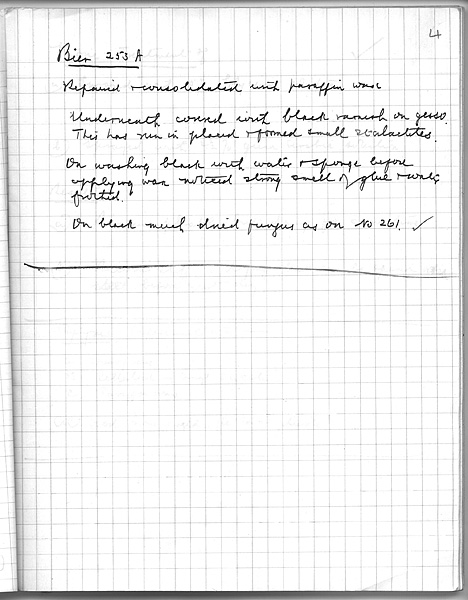 4
Bier 253A
Repaired & consolidated with paraffin wax
Underneath covered with black varnish on gesso.
This has run in places & formed small stalactites.
On washing black with water & sponge before
applying wax noticed strong smell of glue & water
frothed.
On black much dried fungus as on No 261. ✓